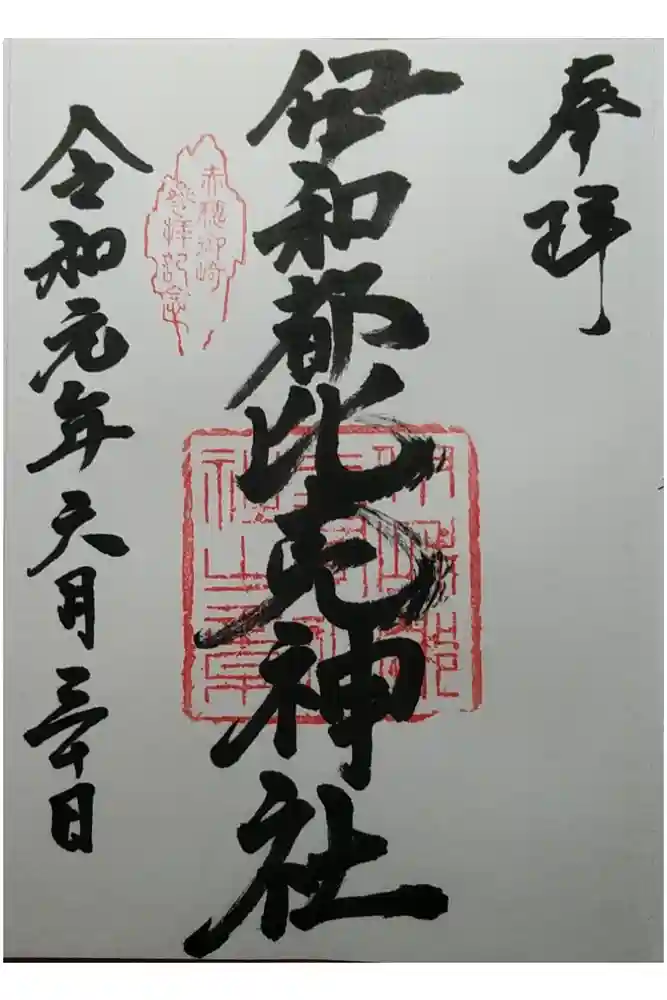 奉拝
伊和都比売神社
赤穂御崎
参拝記念
令和元年六月三十日